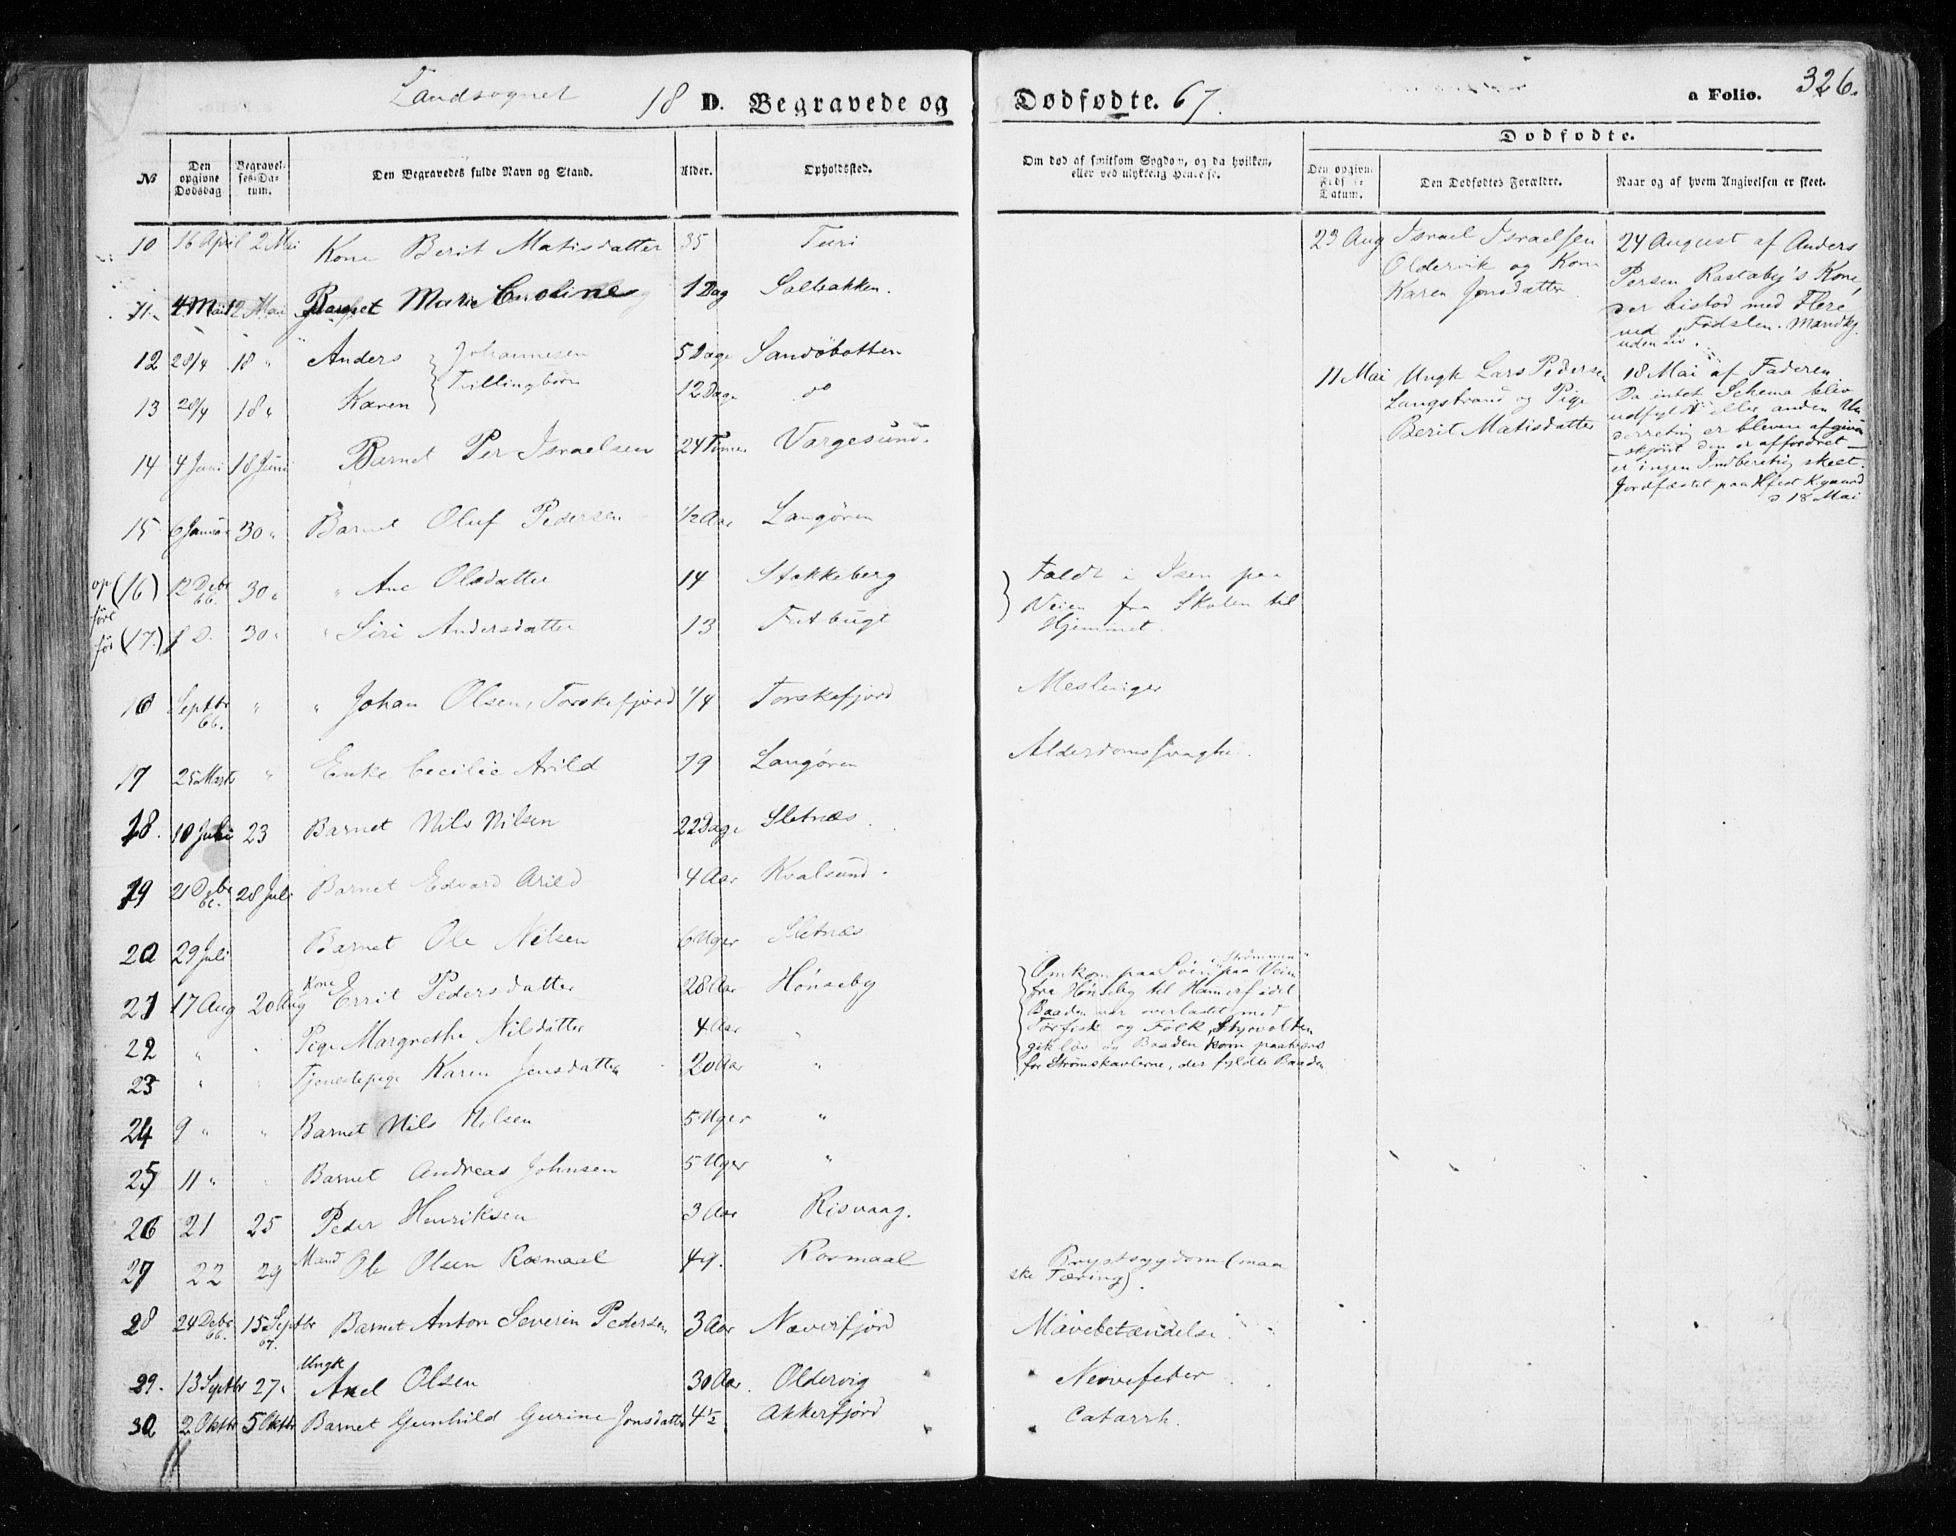 Landsognet 18 D. Begravede og Dødfødte. 67. a Folio. 326.
Dødfødte.
№ Den opgivne Dødsdag Begravelses-Datum. Den Begravedes fulde Navn og Stand. Alder. Opholdssted. Om død af smitsom Sygdom, og da hvilken, eller ved ulykkelig Hændelse. Den opgivne Føds. Datum. Den Dødfødtes Forældre. Naar og af hvem Angivelsen er skeet.
10 16 April 2 Mai Kone Berit Matisdatter 35 Turi
11. 4 Mai 12 Mai Barnet Marie Caroline 1 Dag Solbakken.
12 28/4 18 " Anders Johannesen 5 Dage Sandøbotten
Tvillingbørn
13 28/4 18 " Karen 12 Dage do
14 4 Juni 18 Juni Barnet Per Israelsen 24 Timer Vargesund.
15 6 Januar 30 " Barnet Oluf Pedersen ½ Aar Langøren
(16) 12 Debr 66. 30 " " Ane Olsdatter 14 Stakkeberg
(17.) 30 " " Siri Andersdatter 13 Fætbugt
op ført før
Faldt i Isen paa
Veien fra Skolen til
Hjemmet.
16 Septbr 66. " " Johan Olsen, Torskefjord 1/4 Torskefjord Meslinger
17 25 Marts " Enke Cecilie Arild 79 Langøren Alderdomssvaghe.
18. 10 Juli 23 Barnet Nils Nilsen 22 Dage Sletnæs.
19 21 Debr 66. 28 Juli Barnet Edvard Arild 4 Aar Kvalsund.
20 29 Juli Barnet Ole Nilsen 6 Uger Sletnæs
21 17 Aug 20 Aug Kone Errit Pedersdatter 28 Aar Hønseby
22 " " Pige Margrethe Nilsdatter 4 Aar "
23 " " Tjenestepige Karen Jensdatter 20 Aar "
Omkom paa Søen "Strømmen" paa Vein
fra Hønseby til Hamerfødet
Baaden var overlastet med
Tørfisk og Folk, Styrvolten
gik løs og Baaden kom paatvers
for Strømskavlerne, der fyldte Baaden
24 9 " " Barnet Nils Nilsen 5 Uger "
25 11 " Barnet Andreas Johnsen 5 Uger "
26 21 25 Peder Henriksen 3 Aar Risvaag.
27 22 29 Mand Ole Olsen Rosmaal 49. Rosmaal Brystsygdom (maa
ske Tæring).
28 24 Debr 66. 15 Septbr 67. Barnet Anton Severin Pedersen 3 Aar Næverfjord Mavebetændelse
29. 13 Septbr 27 " Ungk Axel Olsen 30 Aar. Oldervig Nervefeber
30 2 Oktbr 5 Oktbr Barnet Gunhild Gurine Jonsdatter 4½ Akkerfjord Catarrh.
23 Aug Israel Israelsen
Oldervik og Kone
Karen Jonsdatter
24 August af Anders
Persen Rastaby's Kone,
der bistod med Flere
ved Fødslen. Mandkj.
uden Liv.
11 Mai Ungk Lars Pedersen
Langstrand og Pige
Berit Matisdatter
18 Mai af Faderen.
Da intet Schema blev
udfyldt eller anden Un
derretng er bleven afgiven
- skjønt den er affordret -
er ingen Indberetng skeet.
Jordfæstet paa Hfest Kgaard
d 18 Mai